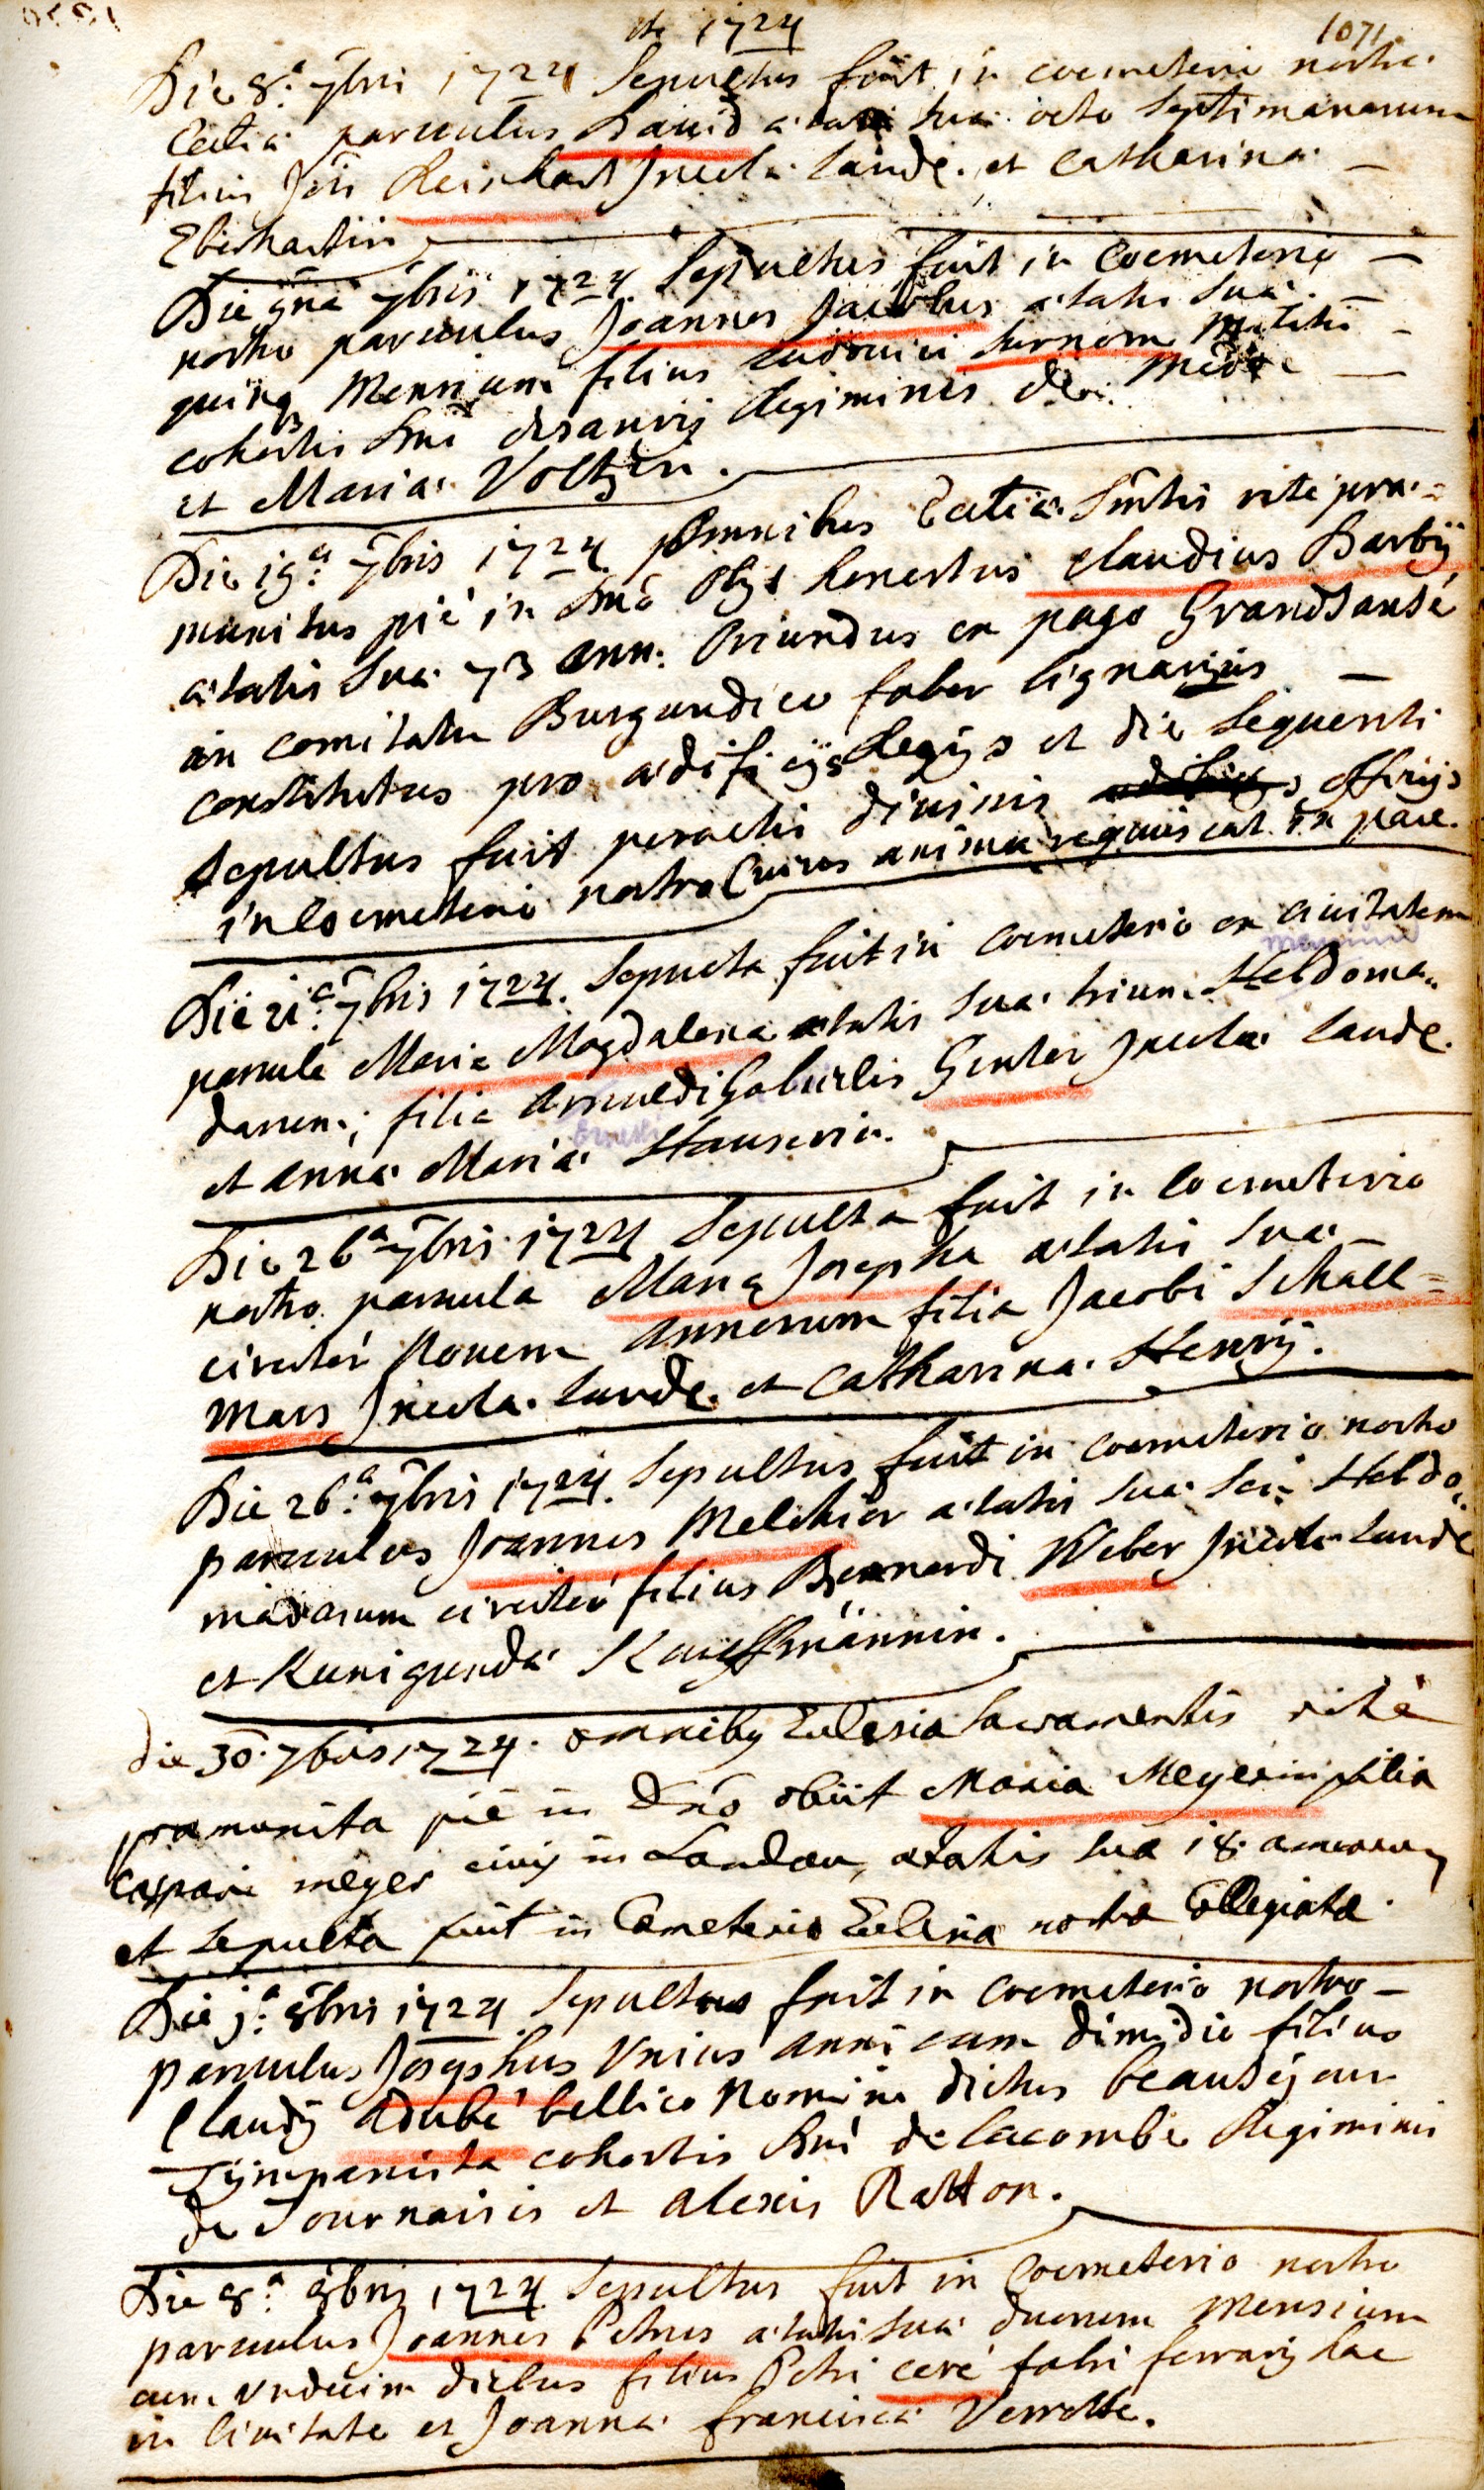 de 1724
1071.
Die 8.a 7bris 1724 Sepultus fuit in coemeterio nostrae
Ecclae parvulus David aetatis suae octo Septimanarum
filius Jois Reinhart Incolae Landae. et Catharinae —
Eberhartin
Die 9na 7bris 1724 Sepultus fuit in Coemeterio —
nostro parvulus Joannes Jacobus aetatis suae. —
quinq3 Mensium filius Ludovici Hernom Militis —
cohortis Dni Regiminis de Medoc —
et Mariae Voltzin.
Die 19.a 7bris 1724 omnibus Ecclae Smtis rite prae=
munitus pie in Dno Obyt honestus Claudius Barbij
aetatis suae 73 ann. Oriundus ex pago Grandsausé
in comitatu Burgundico faber lignarius —
constitutus pro aedificijs Regijs et die sequenti
sepultus fuit peractis divinis officijs
in Coemeterio nostro Cuius anima requiescat in pace.
Die 21.a 7bris 1724. Sepulta fuit in coemeterio ex civitatem
parvula Maria Magdalena aetatis suae trium Hebdoma=
mensium
darum; filia Arnuldi Gabrielis Genter Incolae Landae.
Ernesti
et Annae Mariae Hauserin.
Die 26a 7bris. 1724 Sepulta fuit in Coemeterio
nostro parvula Maria Josepha aetatis suae —
circiter Novem Annorum filia Jacobi Schall=
mars Incolae. Landae. et Catharinae Henrij.
Die 26.a 7bris 1724. Sepultus fuit in coemeterio nostro
parvulus Joannes Melchior aetatis suae sex Hebdo=
madarum circiter filius Bernardi Weber Incolae Landae
et Kunigundae Kauffmännin.
die 30. 7bris 1724. omnibus Ecclesiae Sacramentis rite
praemunita pie in Dno obiit Maria Meyerin filia
Caspari meyer civis in Landau, aetatis suae 18. annorum
et sepulta fuit in Cemeterio Ecclesiae nostrae Collegiatae.
Die j.a 8bris 1724 Sepultus fuit in coemeterio nostro —
parvulus Josephus Unius anni cum dimidio filius
Claudij Adubé bellico Nomine dictus beausejour
Tijmpanista cohortis Dni de Lacombe Regiminis
de Tournaisis et Alexis Ratton.
Die 8.a 8bris 1724 Sepultus fuit in Coemeterio nostro
parvulus Joannes Petrus aetatis suae duorum Mensium
cum undecim diebus filius Petri ceré fabri ferrarij hac
in Civitate et Joannae franciscae Verrotte.